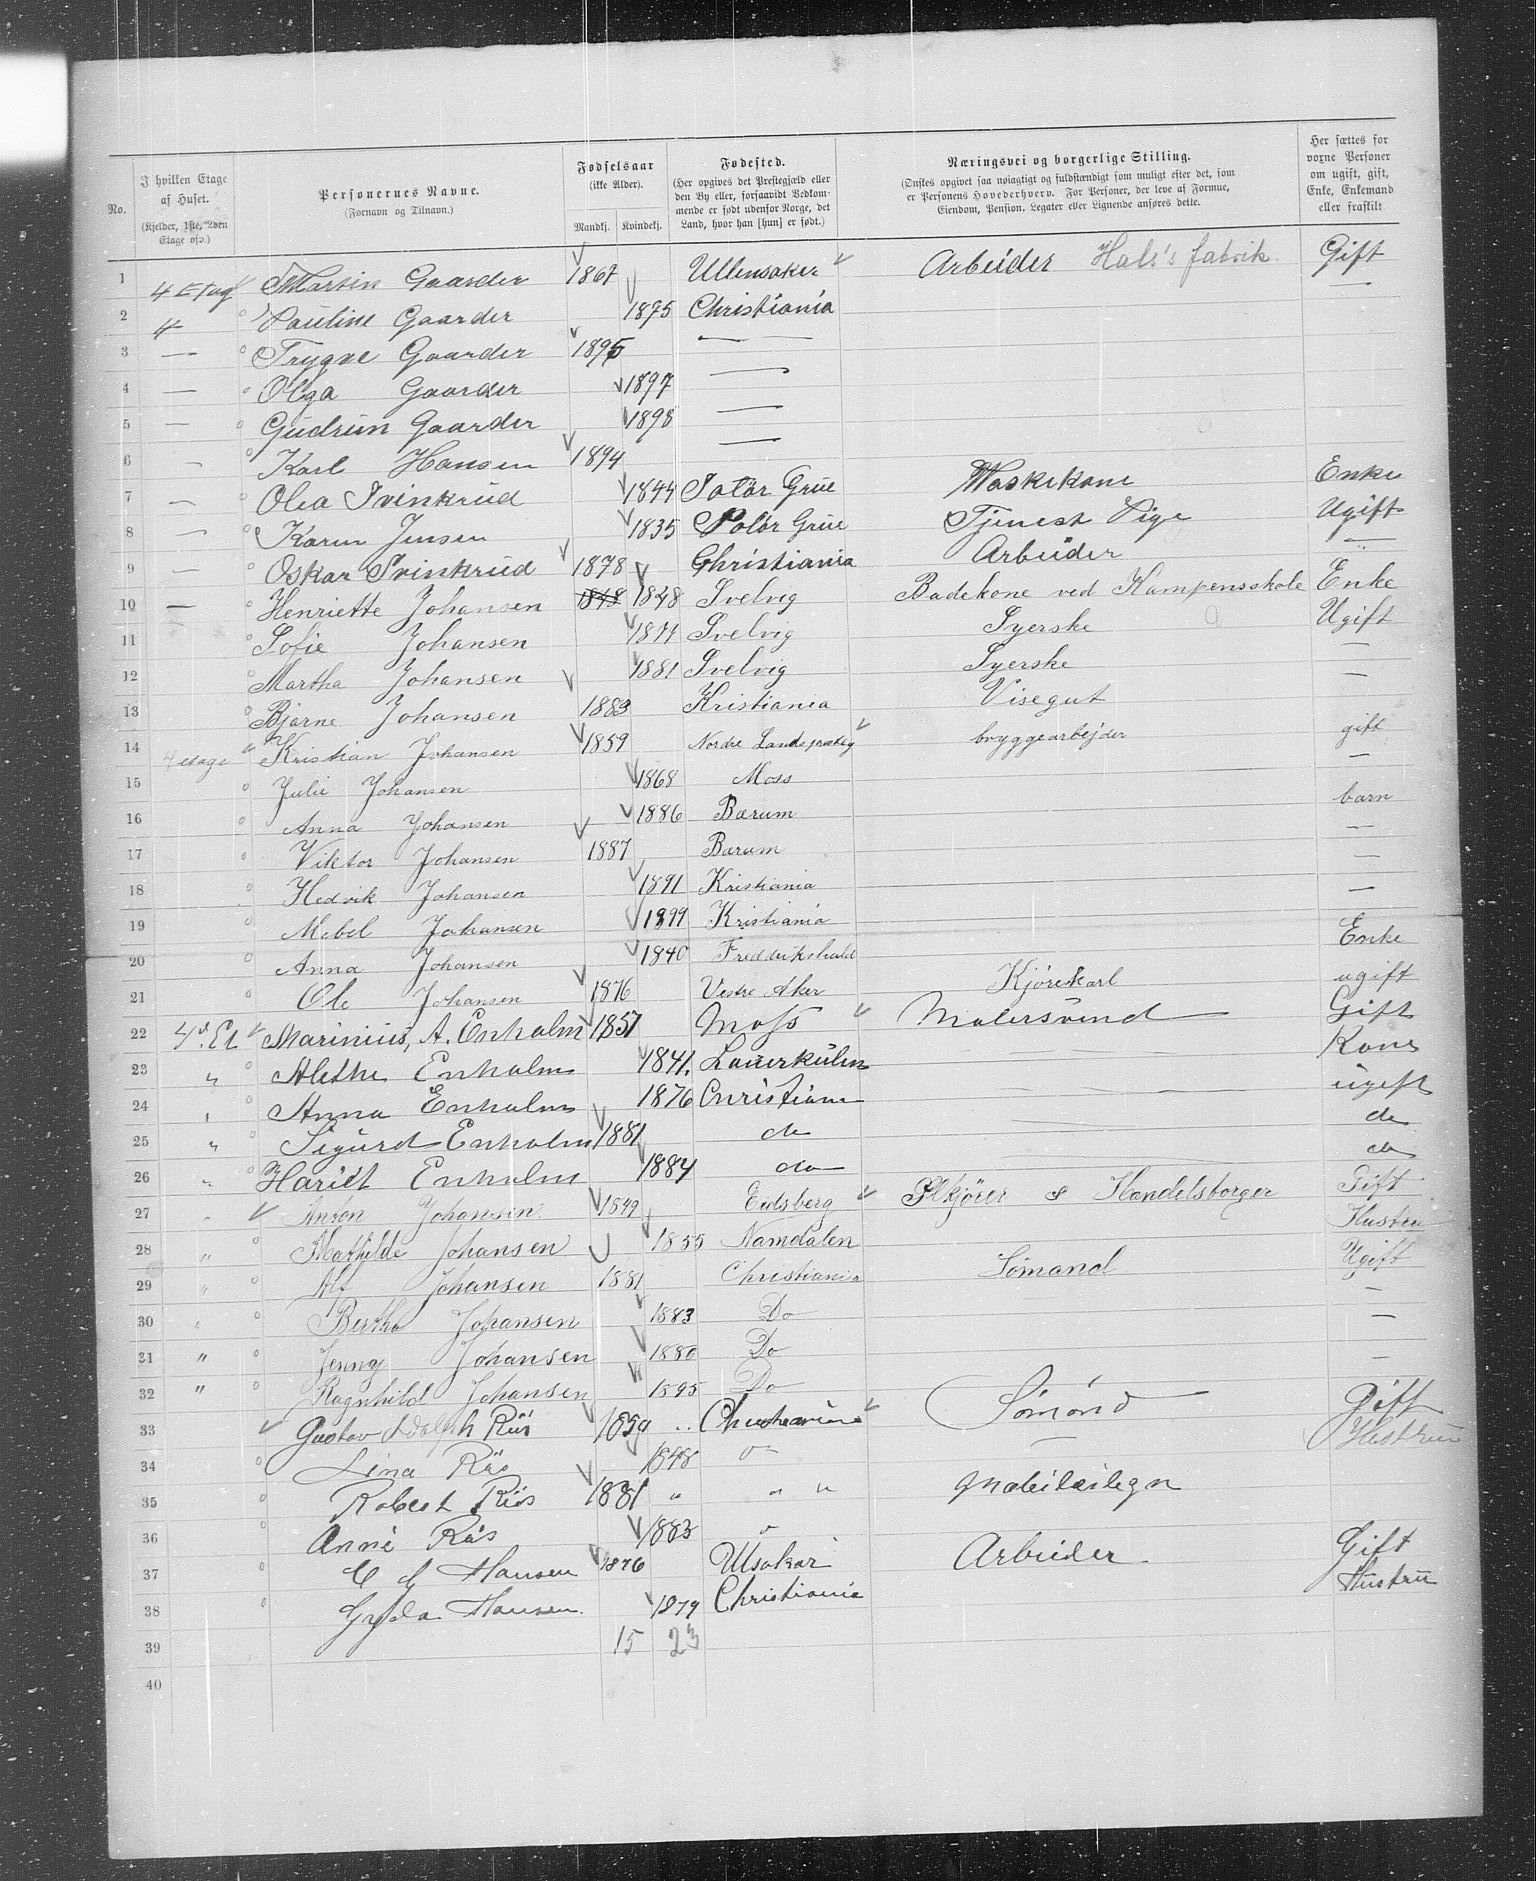 No.
I hvilken Etage af Huset. (Kjelder, 1ste, 2den Etage osv.)
Personernes Navne. (Fornavn og Tilnavn.)
Fødselsaar (ikke Alder). Mandkj. Kvindekj.
Fødested. (Her opgives det Prestegjæld eller den By eller, forsaavidt Vedkommende er født udenfor Norge, det Land, hvor han [hun] er født.)
Næringsvei og borgerlige Stilling. (Ønskes opgivet saa nøiagtigt og fuldstændigt som muligt efter det, som er Personens Hovederhverv. For Personer, der leve af Formue, Eiendom, Pension, Legater eller Lignende anføres dette.)
Her sættes for voxne Personer om ugift, gift, Enke, Enkemand eller fraskilt
1 4 Etag Martin Gaarder 1867 Ullensaker Arbeider Hals's fabrik Gift
2 4 Pauline Gaarder 1875 Christiania —
3 — Trygve Gaarder 1895 — —
4 — Olga Gaarder 1897 —
5 — Gudrun Gaarder 1898 —
6 — Karl Hansen 1894 —
7 — Olea Svinkrud 1844 Solør Grue Waskekone Enke
8 — Karen Jensen 1835 Solør Grue Tjenest Pige Ugift
9 — Oskar Svinkrud 1878 Christiania Arbeider —
10 — Henriette Johansen 1848 1848 Svelvig Badekone ved Kampensskole Enke
11 Sofie Johansen 1877 Svelvig Syerske Ugift
12 Martha Johansen 1881 Svelvig Syerske —
13 Bjarne Johansen 1883 Kristiania Visegut —
14 4 etage Kristian Johansen 1859 Nordre Land bryggearbejder gift
15 Julie Johansen 1868 Moss —
16 Anna Johansen 1886 Bærum barn
17 Viktor Johansen 1887 Bærum —
18 Hedvik Johansen 1891 Kristiania —
19 Mebel Johansen 1899 Kristiania —
20 Anna Johansen 1840 Fredderikshald Enke
21 Ole Johansen 1876 Vestre Aker Kjørekarl ugift
22 4d. Et Marinius, A. Enholm 1857 Moss Malersvend Gift
23 " Alethe Enholm 1841. Laurkulen Kone
24 " Anna Enholm 1876 Christiania ugift
25 " Sigurd Enholm 1881 do do
26 " Harict Enholm 1884 do do
27 " Anton Johansen 1849 Eidsberg Ølkjører & Handelsborger Gift
28 " Mathilde Johansen 1855 Namdalen Hustru
29 " Alf Johansen 1881 Christiania Sømand Ugift
30 " Bertha Johansen 1883 Do —
31 " Jenny Johansen 1886 Do —
32 " Ragnhild Johansen 1895 Do —
33 Gustav Adolph Riis 1859 Christiania Sømand Gift
34 Lina Riis 1848 " — Hustru
35 Robert Riis 1881 " " "
36 Anne Riis 1883 "
37 C J Hansen 1876 Ulsaker Arbeider. Gift
38 Gyda Hansen 1879 Christiania Hustru
39 15 23
40